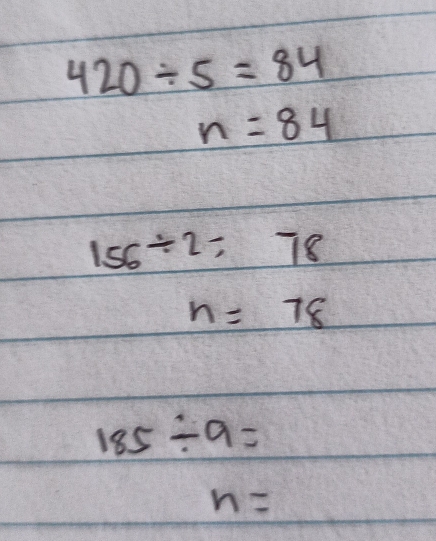 420 ÷ 5 = 84
n = 84
156 ÷ 2 = 78
n = 78
185 ÷ 9 =
n =